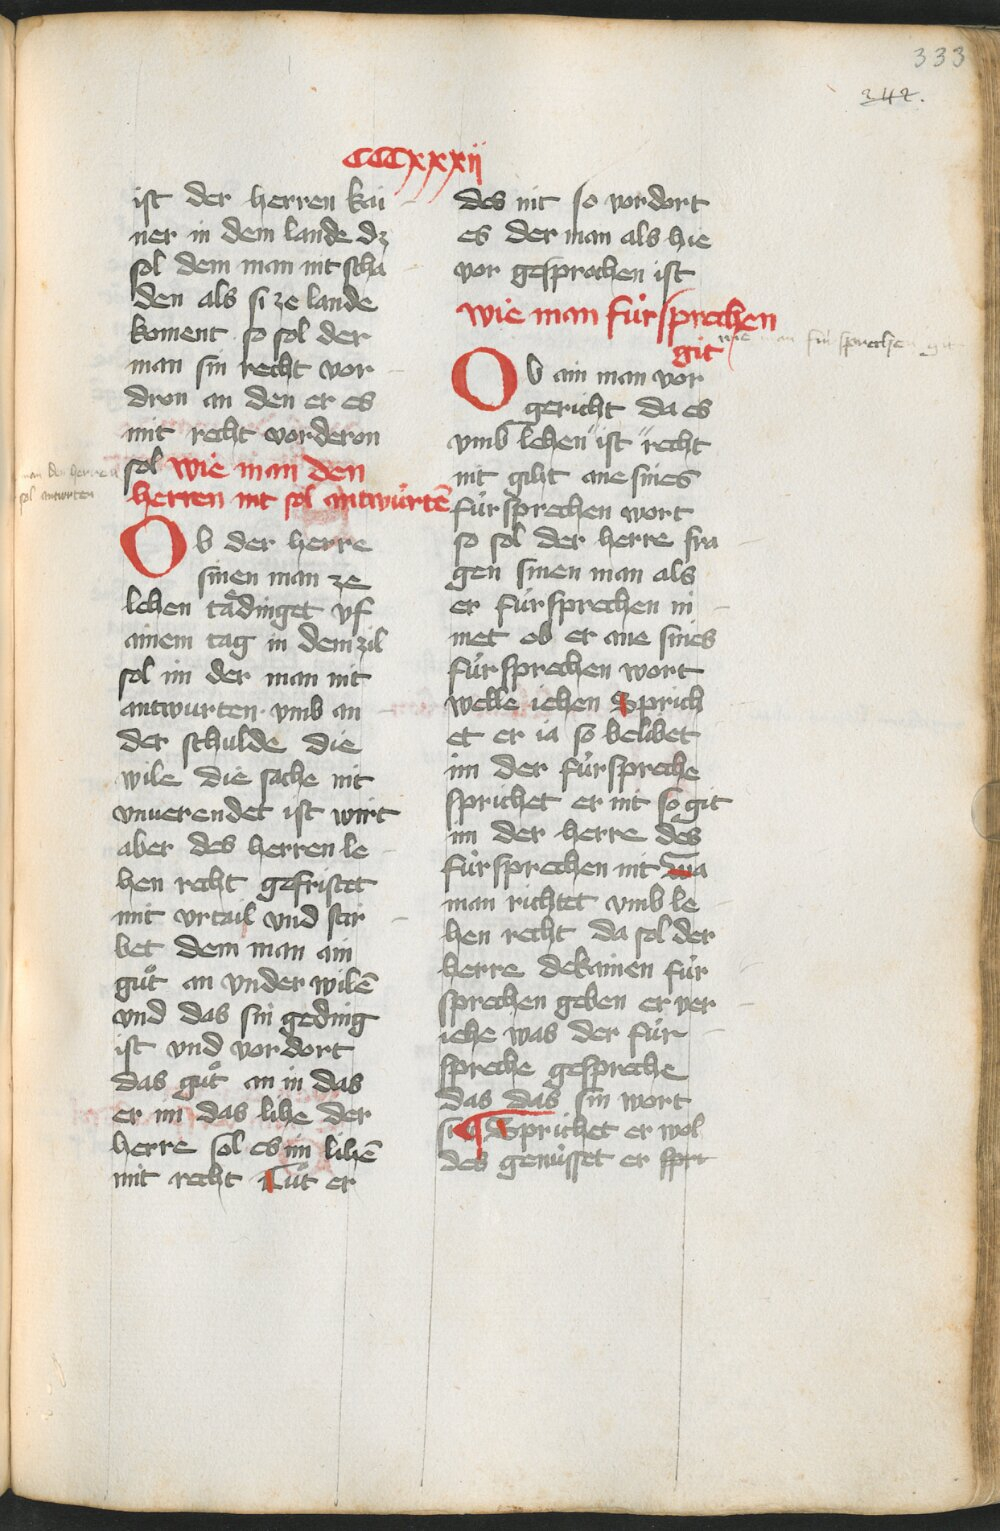 333
342.
CCCxxxii
ist der herren kai
ner in dem lande dz
sol dem man nit scha
den als si ze lande
koment so sol der
man sin recht vor
dron an den er es
mit recht vorderon
sol wie man den
herren nit sol antwúrtē
Ob der herre
sinen man ze
lehen tådinget vf
ainem tag in dem zil
sol im der man nit
antwurten vmb an
der schulde die
wile die sache nit
vnuerendet ist wirt
aber des herren le
hen recht gefristet
mit vrtail vnd stir
bet dem man ain
guͦt an vnder wilē
vnd das sin geding
ist vnd vordort
das guͦt an in das
er im das lihe der
herre sol es im lihē
mit recht Tuͦt er
man den herren
sol antwrten
des nit so vordort
es der man als hie
vor gesprochen ist
wie man fúrsprechen
git
wie man fúrsprechen git
Ob ain man vor
gericht da es
vmb lehen ist recht
nit giht ane sines
fúrsprechen wort
so sol der herre fra
gen sinen man als
er fúrsprechen ni
met ob er ane sines
fúrsprechen wort
welle iehen Sprich
et er ia so belibet
im der fúrspreche
sprichet er nit so git
im der herre des
fúrsprechen nit wa
man richtet vmb le
hen recht da sol der
herre dekainen fúr
sprechen geben er ver
iehe was der fúr
spreche gespreche
das das sin wort
si Sprichet er wol
des genússet er spr